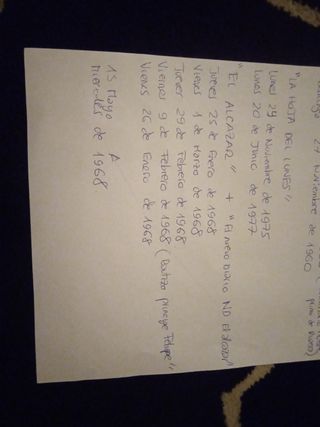 27 Noviembre de 1960
primo de Rivera)
"LA HOJA DEL LUNES"
Lunes 24 de Noviembre de 1975
Lunes 20 de Junio de 1977
"EL ALCAZAR" + "El nuevo Diario NO
Jueves 25 de Enero de 1968
Viernes 1 de Marzo de 1968
Jueves 29 de Febrero de 1968
Viernes 9 de Febrero de 1968 (Bautizo principe Felipe"
Viernes 26 de Enero de 1968
A
13 Mayo
miercoles de 1968